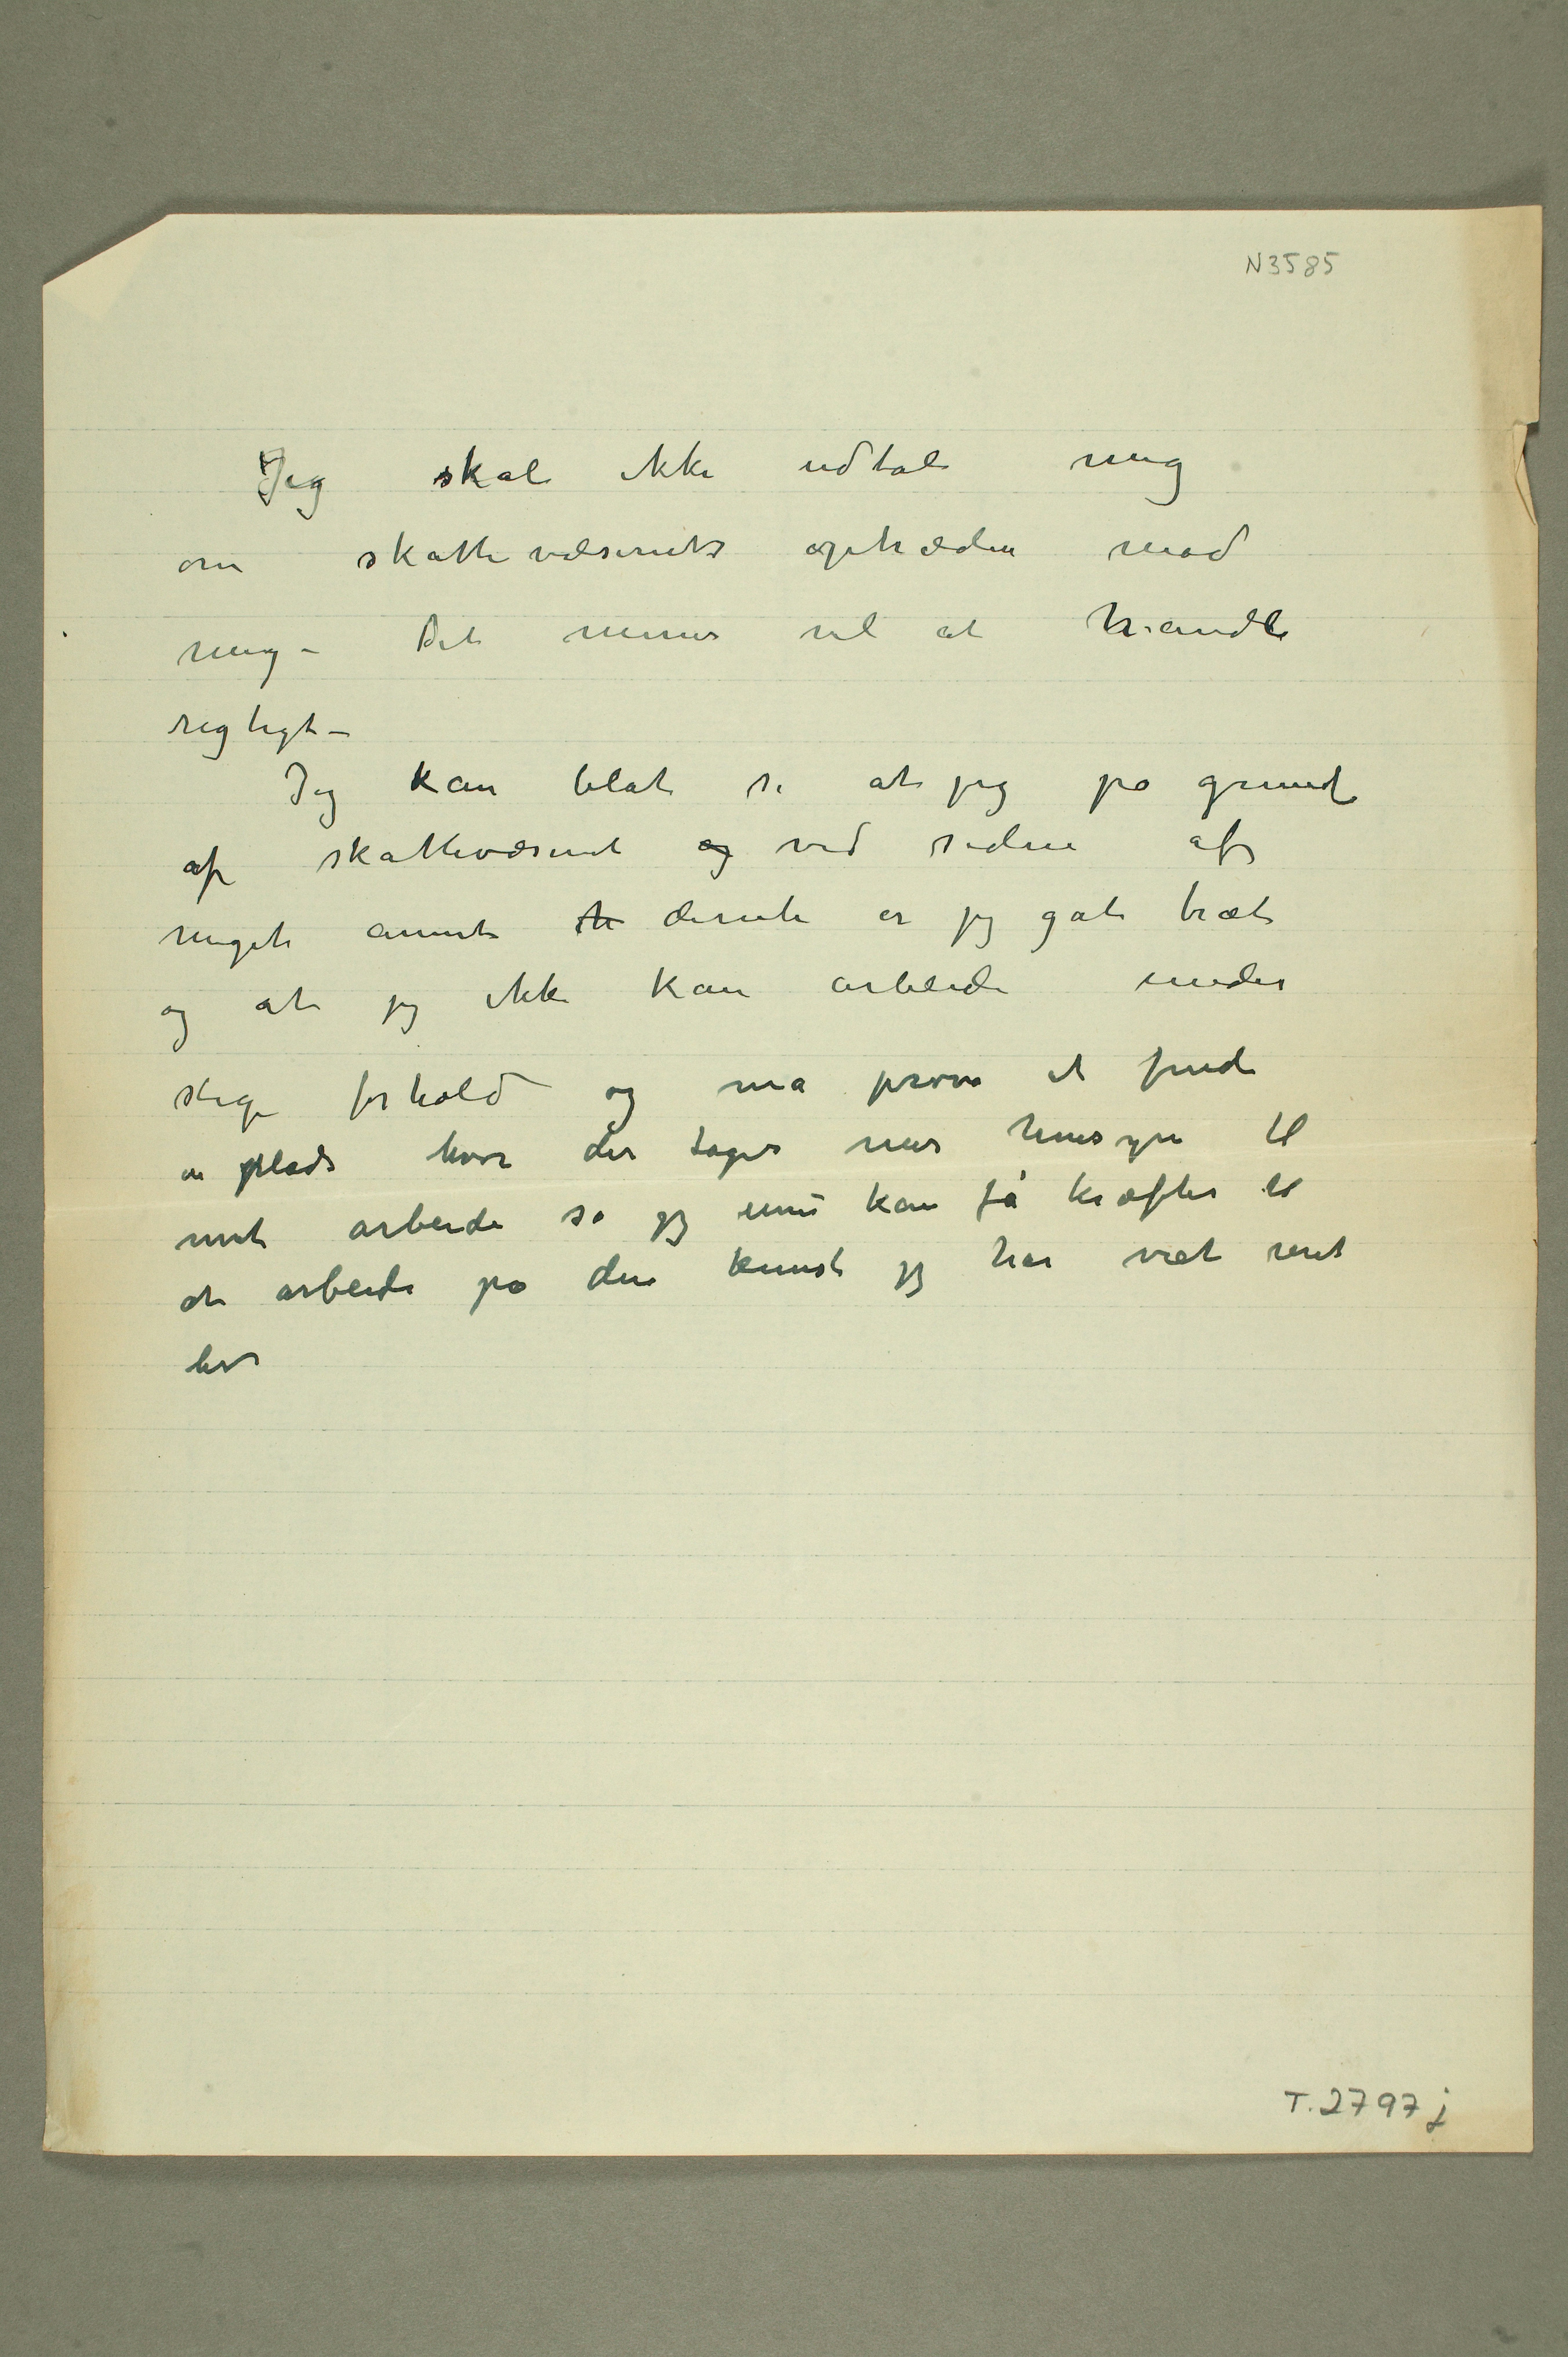 N3585
Jeg skal ikke udtale mig
om skattevæsenets optræden mod
mig – Det mener vel at handle
regtigt –
Jeg kan blot se at jeg på grund
af skattevæsenet og ved siden af
meget annet dernede er jeg gåt træt
og at jeg ikke kan arbeide under
slige forhold og må prøve at finde
en plads hvor der tages mer hensyn til
mit arbeide så jeg ennu kan få kræfter til
at arbeide på den kunst jeg har viet mit
liv
T.2797j